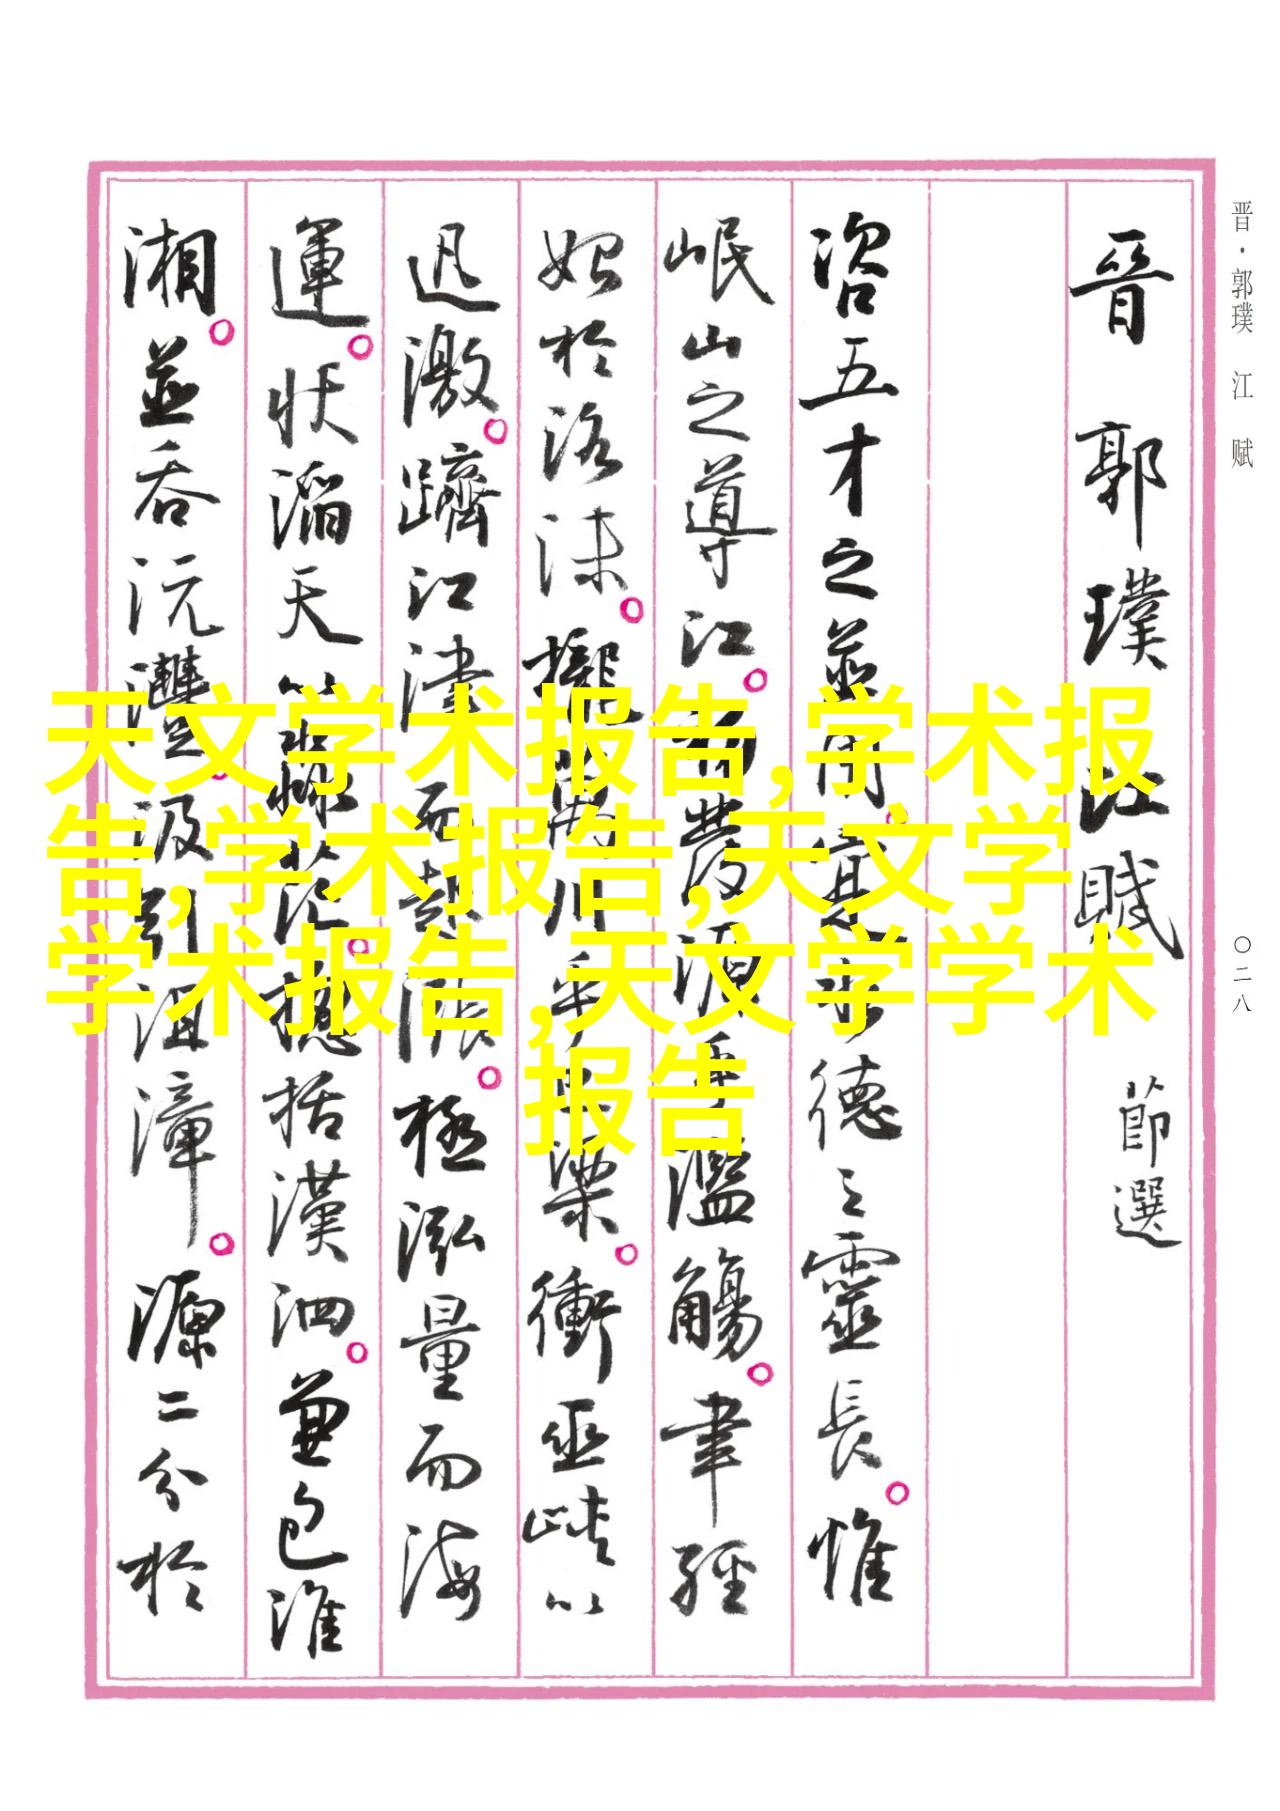 晋·郭璞 江 赋
〇二八
晉 郭璞江賦 節選
咨五才之並用。寔水德之靈長。惟
岷山之導江。初發源乎濫觴。聿經
始於洛沬。攏萬川乎巴梁。衝巫峽以
迅激。躋江津而起漲。極泓量而海
運。狀滔天以淼茫。揔括漢泗。兼包淮
湘。並吞沅澧。汲引沮漳。源二分於
天文学术报告,学术报
告,学术报告,天文学
学术报告,天文学学术
报告